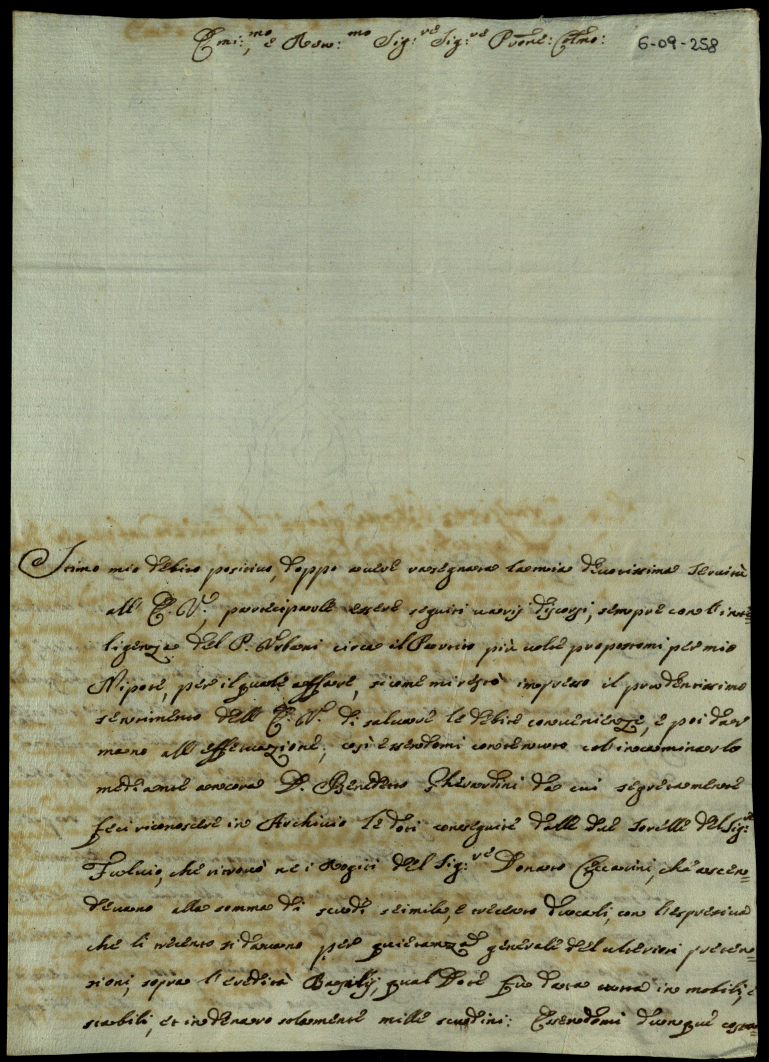 Emi:mo, e Rev:mo Sig:re Sig:re Prone: Colmo: 6-09-258
Stimo mio debito positivo, doppo avere rasegnata la mia devotissima servitù
all' E. V., parteciparle essere seguiti varij discorsi, sempre con l'inte=
ligenza del P. Urbani circa il Partito più volte propostomi per mio
Nipote, per il quale affare, sicome mi restò impresso il prudentissimo
sentimento dell' E. V. di salvare le debite convenienze, e poi dar
mano all' effettuazione; così essendomi contenuto col incaminarlo
mediante ancora D. Benedetto Gherardini da cui segretamente
feci riconoscere in Archivio le doti conseguite dalle due sorelle del Sig:re
Fulvio, che ritrovò ne i Rogiti del Sig:re Donato Ceccarini, che ascen=
devano alla somma di scudi seimila, e trecento ducali, con l'espressiva
che li trecento si davano per quietanza generale del ulteriori preten=
sioni, sopra l'eredità Bagalij, qual Dote fu data tutta in mobili, e
stabili, et in denaro solamente mille scudini: Essendomi dunque